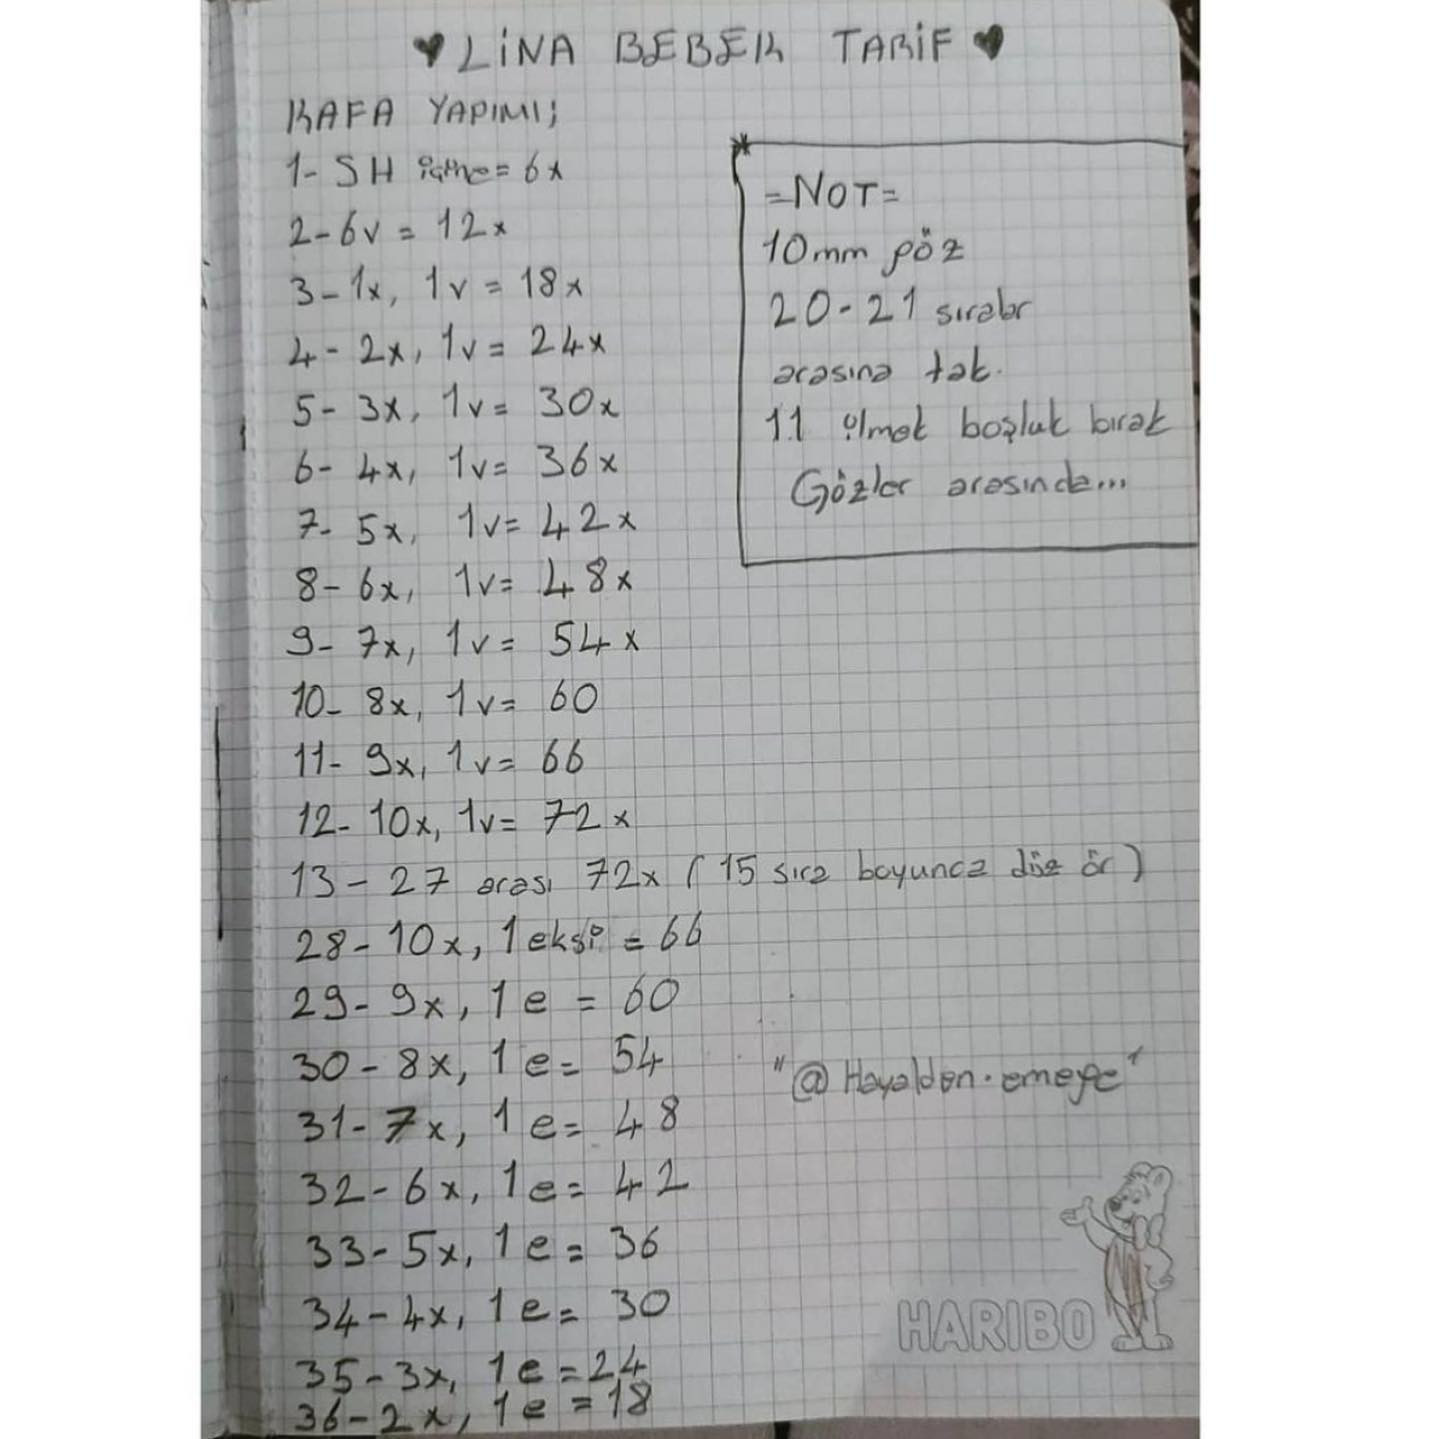 ♥ LİNA BEBEK TARİF ♥
KAFA YAPIMI;
1- SH içine = 6x
2- 6v = 12x
3- 1x, 1v = 18x
4- 2x, 1v = 24x
5- 3x, 1v = 30x
6- 4x, 1v = 36x
7- 5x, 1v = 42x
8- 6x, 1v = 48x
9- 7x, 1v = 54x
10- 8x, 1v = 60
11- 9x, 1v = 66
12- 10x, 1v = 72x
13 - 27 arası 72x ( 15 sıra boyunca düz ör )
28- 10x, 1 eksi = 66
29- 9x, 1 e = 60
30- 8x, 1 e = 54
31- 7x, 1 e = 48
32- 6x, 1 e = 42
33- 5x, 1 e = 36
34- 4x, 1 e = 30
35- 3x, 1 e = 24
36- 2x, 1 e = 18
= NOT =
10mm göz
20-21 sıralar
arasına tak.
11 ilmek boşluk bırak
Gözler arasında...
"@Hayalden.emege"
HARIBO